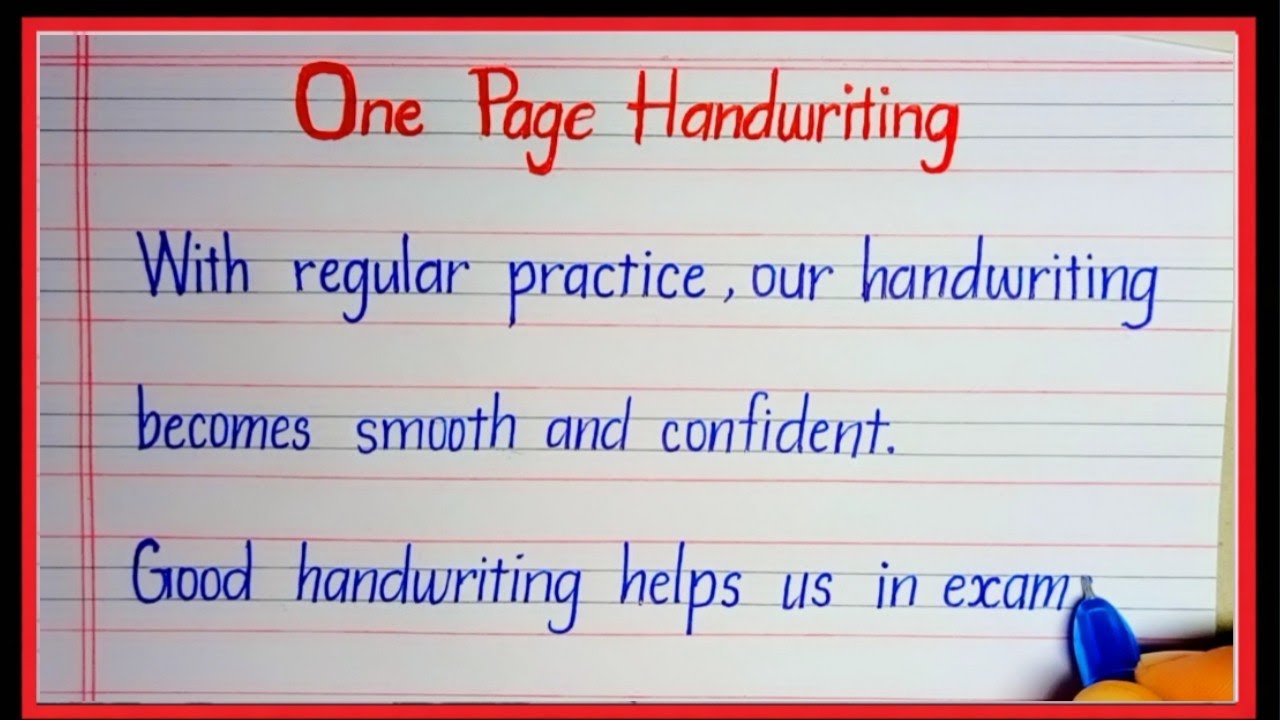 One Page Handwriting
With regular practice, our handwriting
becomes smooth and confident.
Good handwriting helps us in exam